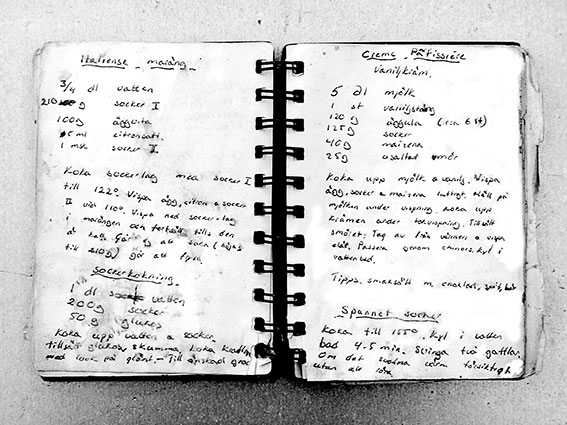 Italiensk maräng
3/4 dl vatten
210 g socker I
100g äggvita
5 ml citronsaft
1 msk socker II
Koka sockerlag med socker I
till 122°. Vispa ägg, citron & socker
II vid 110°. Vispa ned sockerlag
i marängen och fortsätt tills den
är kall. Går att
till 210g) går att frysa
Sockerkokning
1 dl vatten
200g socker
50 g glukos
Koka upp vatten & socker,
tillsätt glukos, skumma, koka
med lock på glänt. - Till önskad grad
Creme Pâtissière
Vaniljkräm.
5 dl mjölk
1 st vaniljstång
120 g äggula (ca 6 st)
125g socker
40g maizena
25g osaltat smör
Koka upp mjölk & vanilj. Vispa
ägg, socker & maizena luftigt. Häll på
mjölken under vispning. Koka upp
krämen under omvispning. Tillsätt
smöret. Tag av från värmen & vispa
slät. Passera genom chinois. Kyl i
vattenbad.
Tipps: smaksätt m. choklad, sprit, bär
Spunnet socker
Koka till 155°. Kyl i vatten
bad 4-5 min. Svinga två gafflar.
Om det svalna värm försiktigt
utan att röra